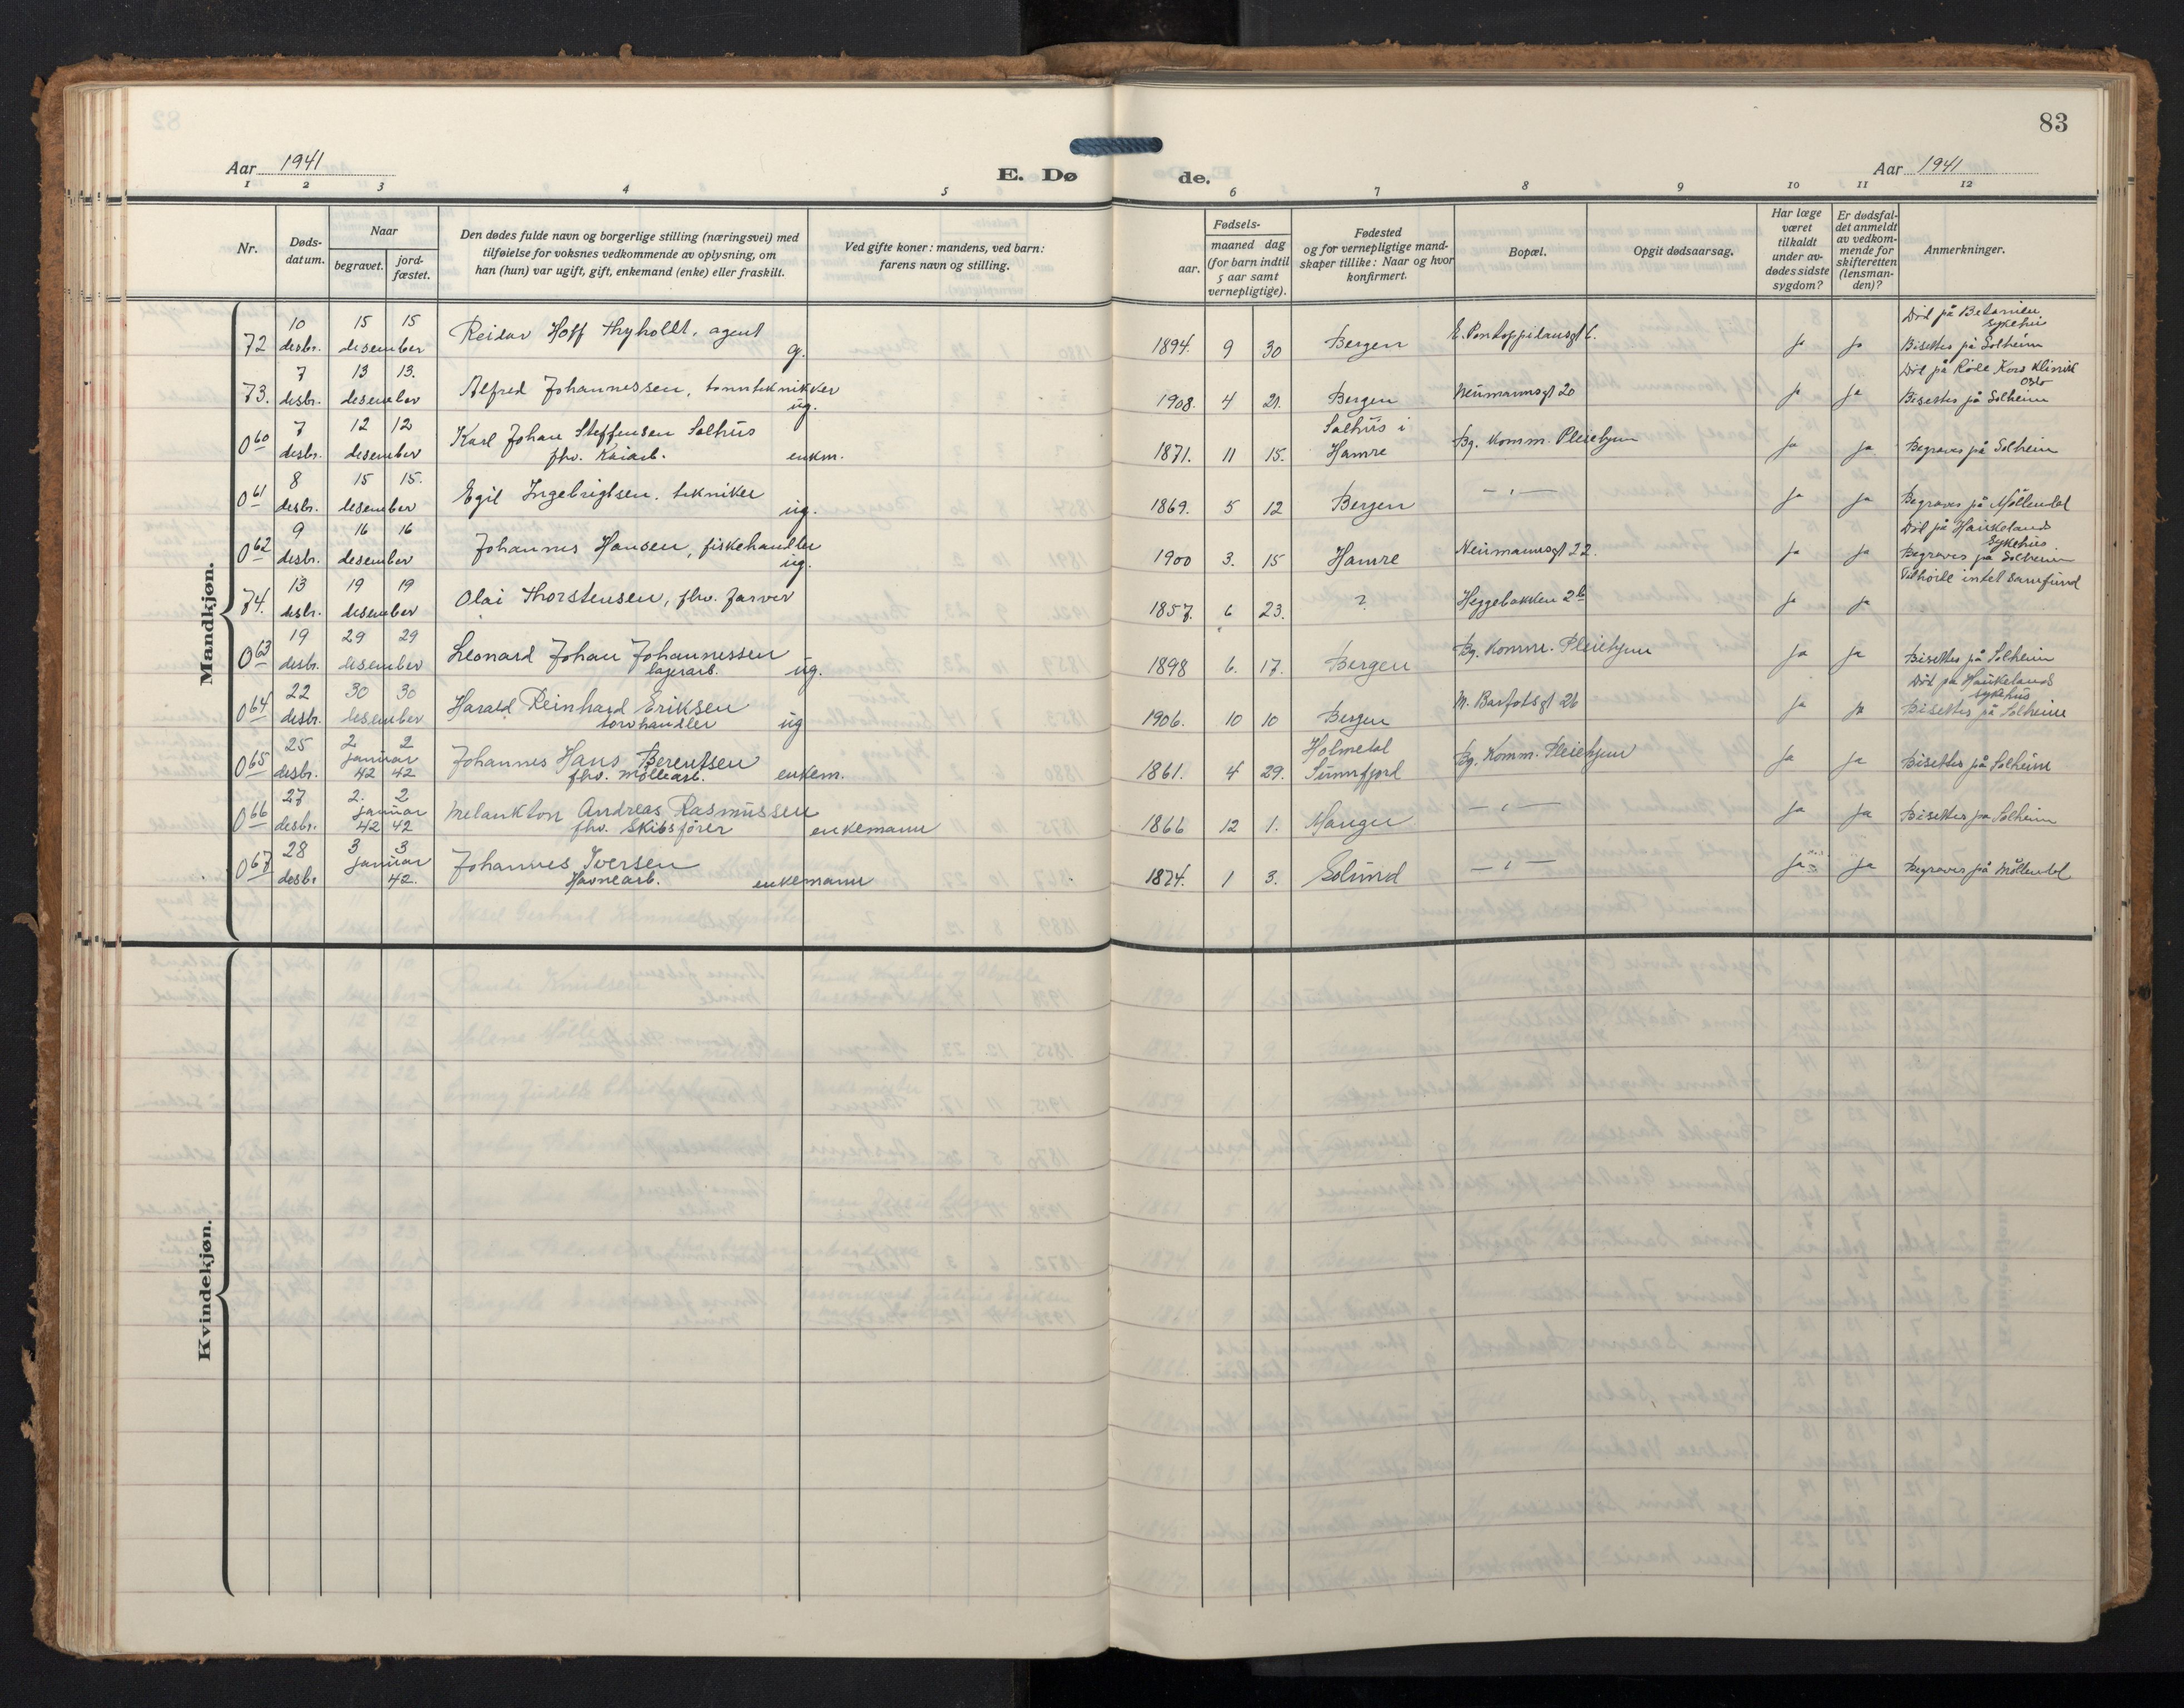 83
Aar 1941
E. Dø
de.
Aar 1941
1 2 3 4 5 6 7 8 9 10 11 12
Nr.
Døds-
datum.
Naar
begravet.
jord-
fæstet.
Den dødes fulde navn og borgerlige stilling (næringsvei) med
tilføielse for voksnes vedkommende av oplysning, om
han (hun) var ugift, gift, enkemand (enke) eller fraskilt.
Ved gifte koner: mandens, ved barn:
farens navn og stilling.
Fødsels-
aar.
maaned dag
(for barn indtil
5 aar samt
vernepligtige).
Fødested
og for vernepligtige mand-
skaper tillike: Naar og hvor
konfirmert.
Bopæl.
Opgit dødsaarsag.
Har læge
været
tilkaldt
under av-
dødes sidste
sygdom?
Er dødsfal-
det anmeldt
av vedkom-
mende for
skifteretten
(lensman-
den)?
Anmerkninger.
Mandkjøn.
10 15 15 Reidar Hoff Thyholdt, agent E. Pontoppidansgt 6. Død på Betanien
sykehus
72 desbr. desember g. 1894. 9 30 Bergen ja ja Bisettes på Solheim
7 13 13. Alfred Johannessen, tannteknikker Neumannsgt 20 Död på Röde Kors Klinikk
Oslo
73. desbr. desember ug. 1908. 4 21. Bergen ja ja Bisettes på Solheim
7 12 12 Karl Johan Steffensen Salhus Salhus i Bg. Komm. Pleiehjem
060 desbr. desember fhv. Kaiarb. enkm. 1871. 11 15. Hamre ja ja Begraves på Solheim
8 15 15. Egil Ingebrigtsen. tekniker — " —
061 desbr. desember ug. 1869. 5 12 Bergen ja ja Begraves på Möllendal
9 16 16 Johannes Hansen, fiskehandler Neumannsgt 22. Död på Haukelands
sykehus
062 desbr. desember ug. 1900 3. 15 Hamre ja ja Begraves på Solheim
13 19 19 Olai Thorstensen, fhv. farver Heggebakken 2b Tilhörte intet samfund
74. desbr. desember 1857. 6 23. ? ja ja
19 29 29 Leonard Johan Johannessen Bg. Komm. Pleiehjem
063 desbr. desember lagerarb. ug. 1898 6. 17. Bergen ja ja Bisettes på Solheim
22 30 30 Harald Reinhard Eriksen M. Barfotsgt 26 Död på Haukelands
sykehus
064 desbr. desember torvhandler ug 1906. 10 10 Bergen ja ja Bisettes på Solheim
25 2 2 Johannes Hans Berentsen Holmedal Bg. Komm. Pleiehjem
januar
065 desbr. 42 42 fhv. möllearb. enkem. 1861. 4 29. Sunnfjord ja ja Bisettes på Solheim
27 2. 2 Melankton Andreas Rasmussen — " —
januar
066 desbr. 42 42 fhv. Skibsförer enkemann 1866 12 1. Manger ja ja Bisettes på Solheim
28 3 3 Johannes Iversen — " —
januar
067 desbr. 42. Havnearb. enkemann 1874. 1 3. Solund ja ja Begraves på Möllendal
Kvindekjøn.